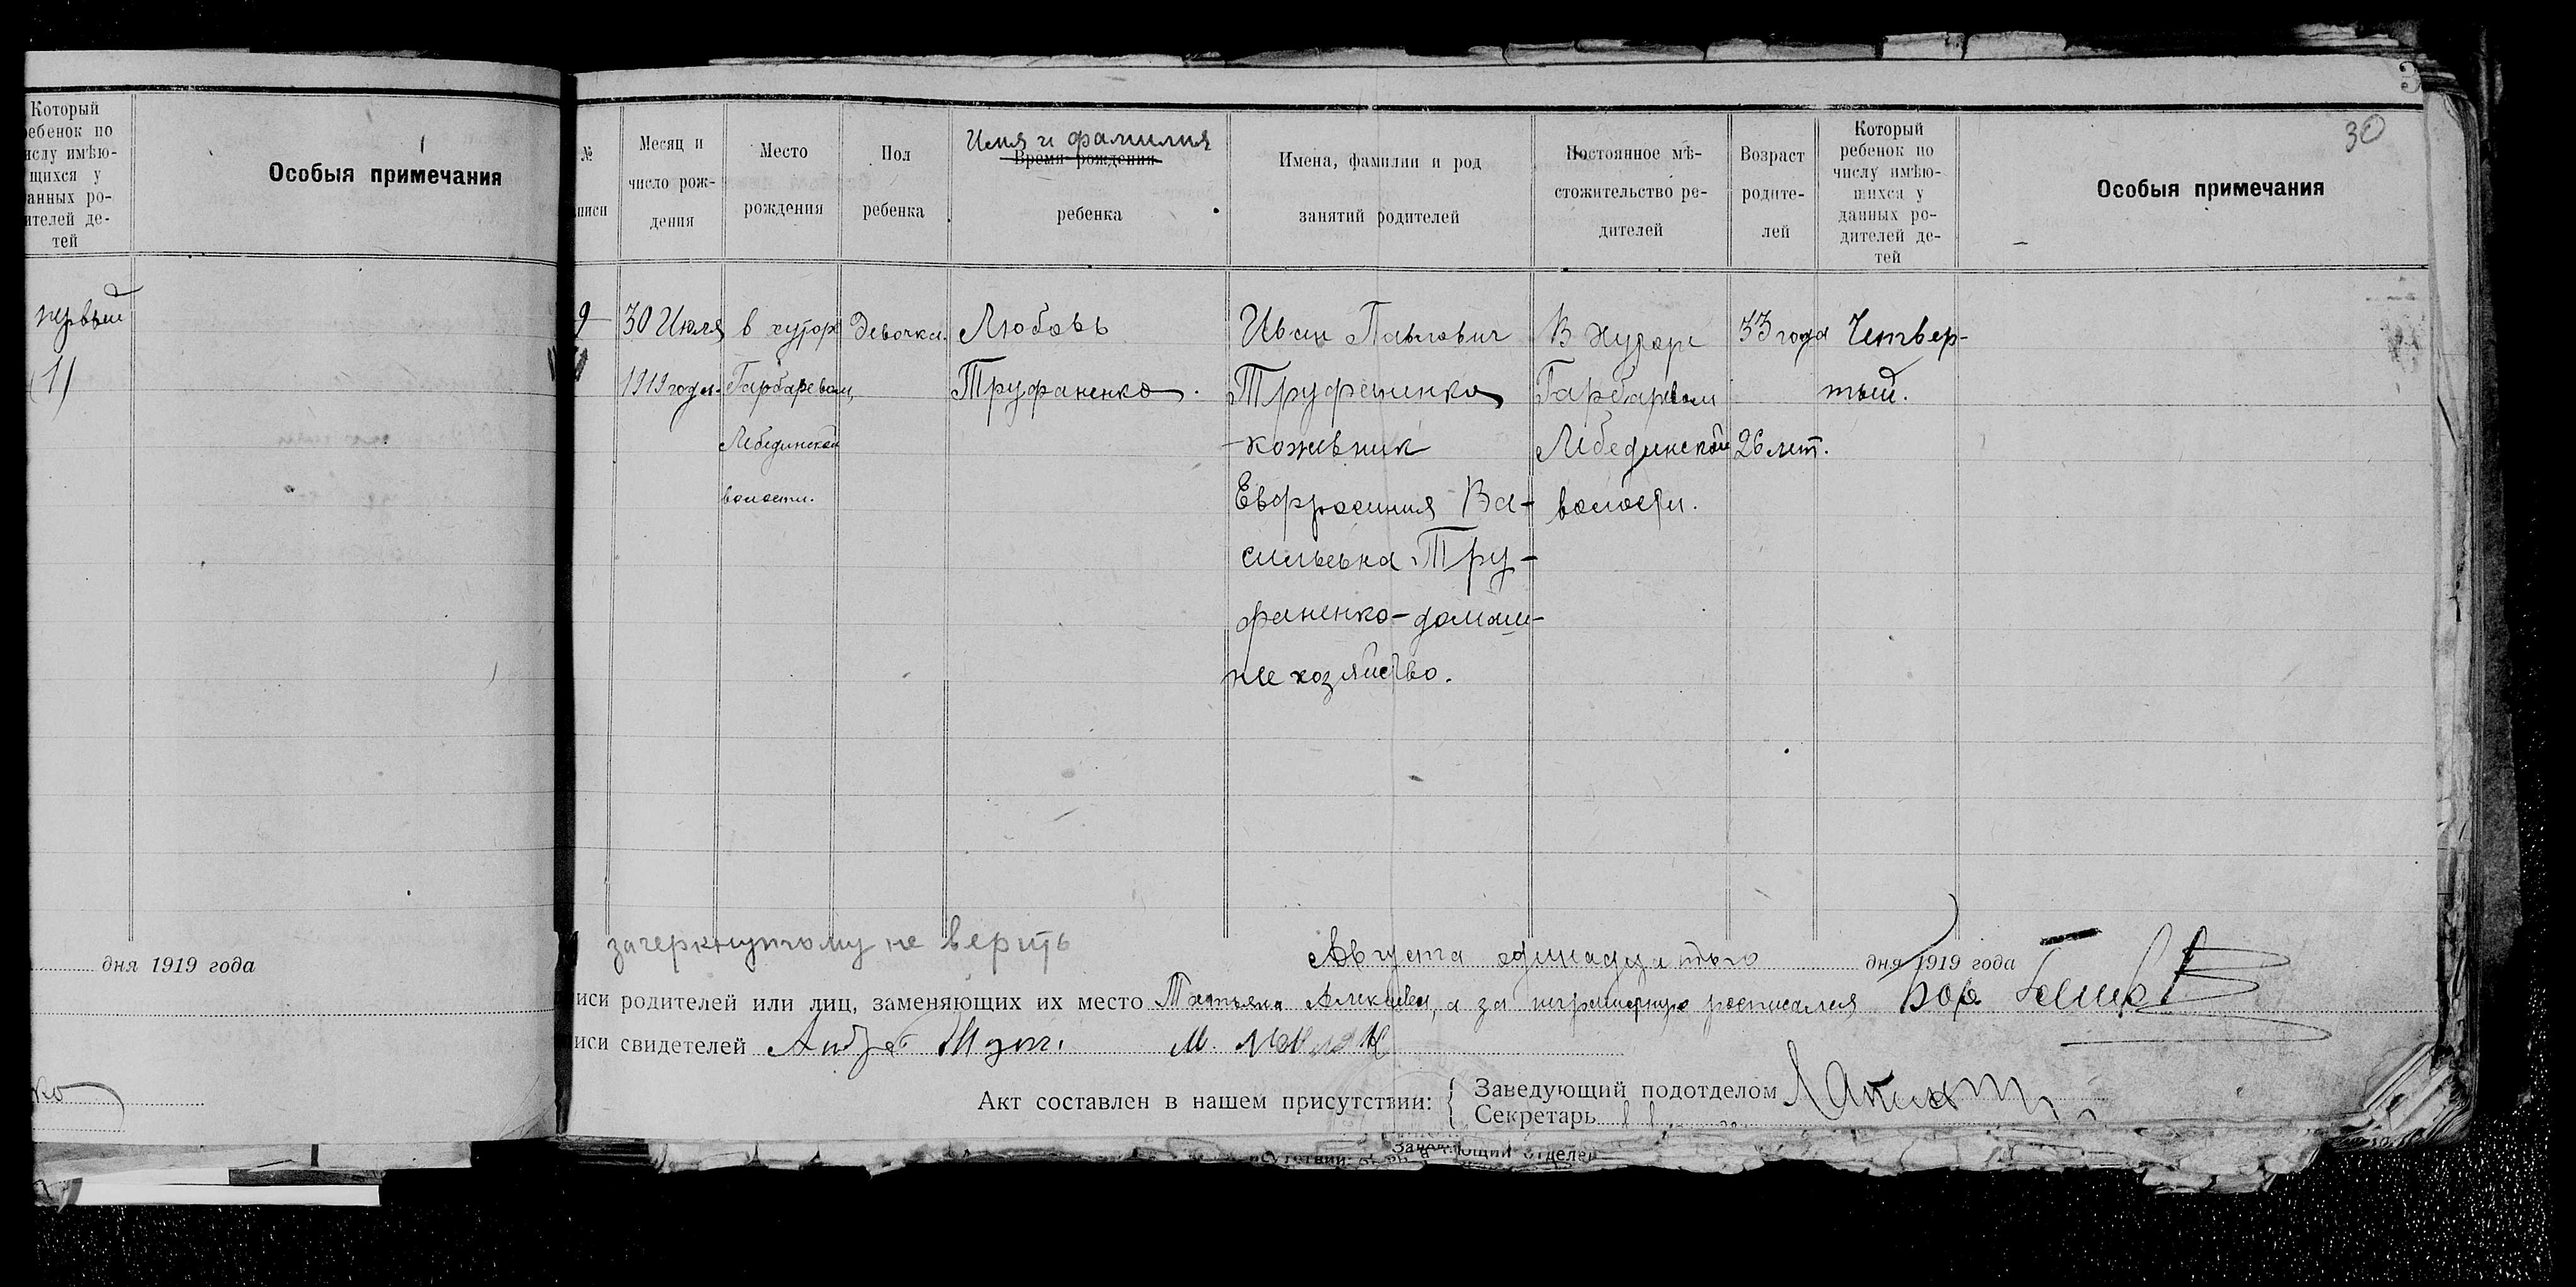 Который
ребенок по
числу имѣю-
щихся у
данных ро-
дителей де-
тей
Особыя примечания
первый
(1)
дня 1919 года
3
30
№
Месяц и
число рож-
дения
Место
рождения
Пол
ребенка
Имя и фамилия
Время рождения
ребенка
Имена, фамилии и род
занятий родителей
Постоянное мѣ-
стожительство ро-
дителей
Возраст
родите-
лей
Который
ребенок по
числу имѣю-
щихся у
данных ро-
дителей де-
тей
Особыя примечания
9
30 Июля
1919 года.
в хуторе
Гарбаревом,
Лебединской
волости.
Девочка.
Любовь
Труфаненко.
Иван Павлович
Труфаненко
-кожевник
Евфросиния Ва-
сильевна Тру-
фаненко-домаш-
нее хозяйство.
В Хуторе
Гарбаревом
Лебединской
волости.
33 года
26 лет.
Четвер-
тый.
зачеркнутому не верить
Августа одинадцатого дня 1919 года
иси родителей или лиц, заменяющих их место Татьяна, а за неграмотную росписался
иси свидетелей
Акт составлен в нашем присутствии:
Заведующий подотделом
Секретарь
Заведующий отделе